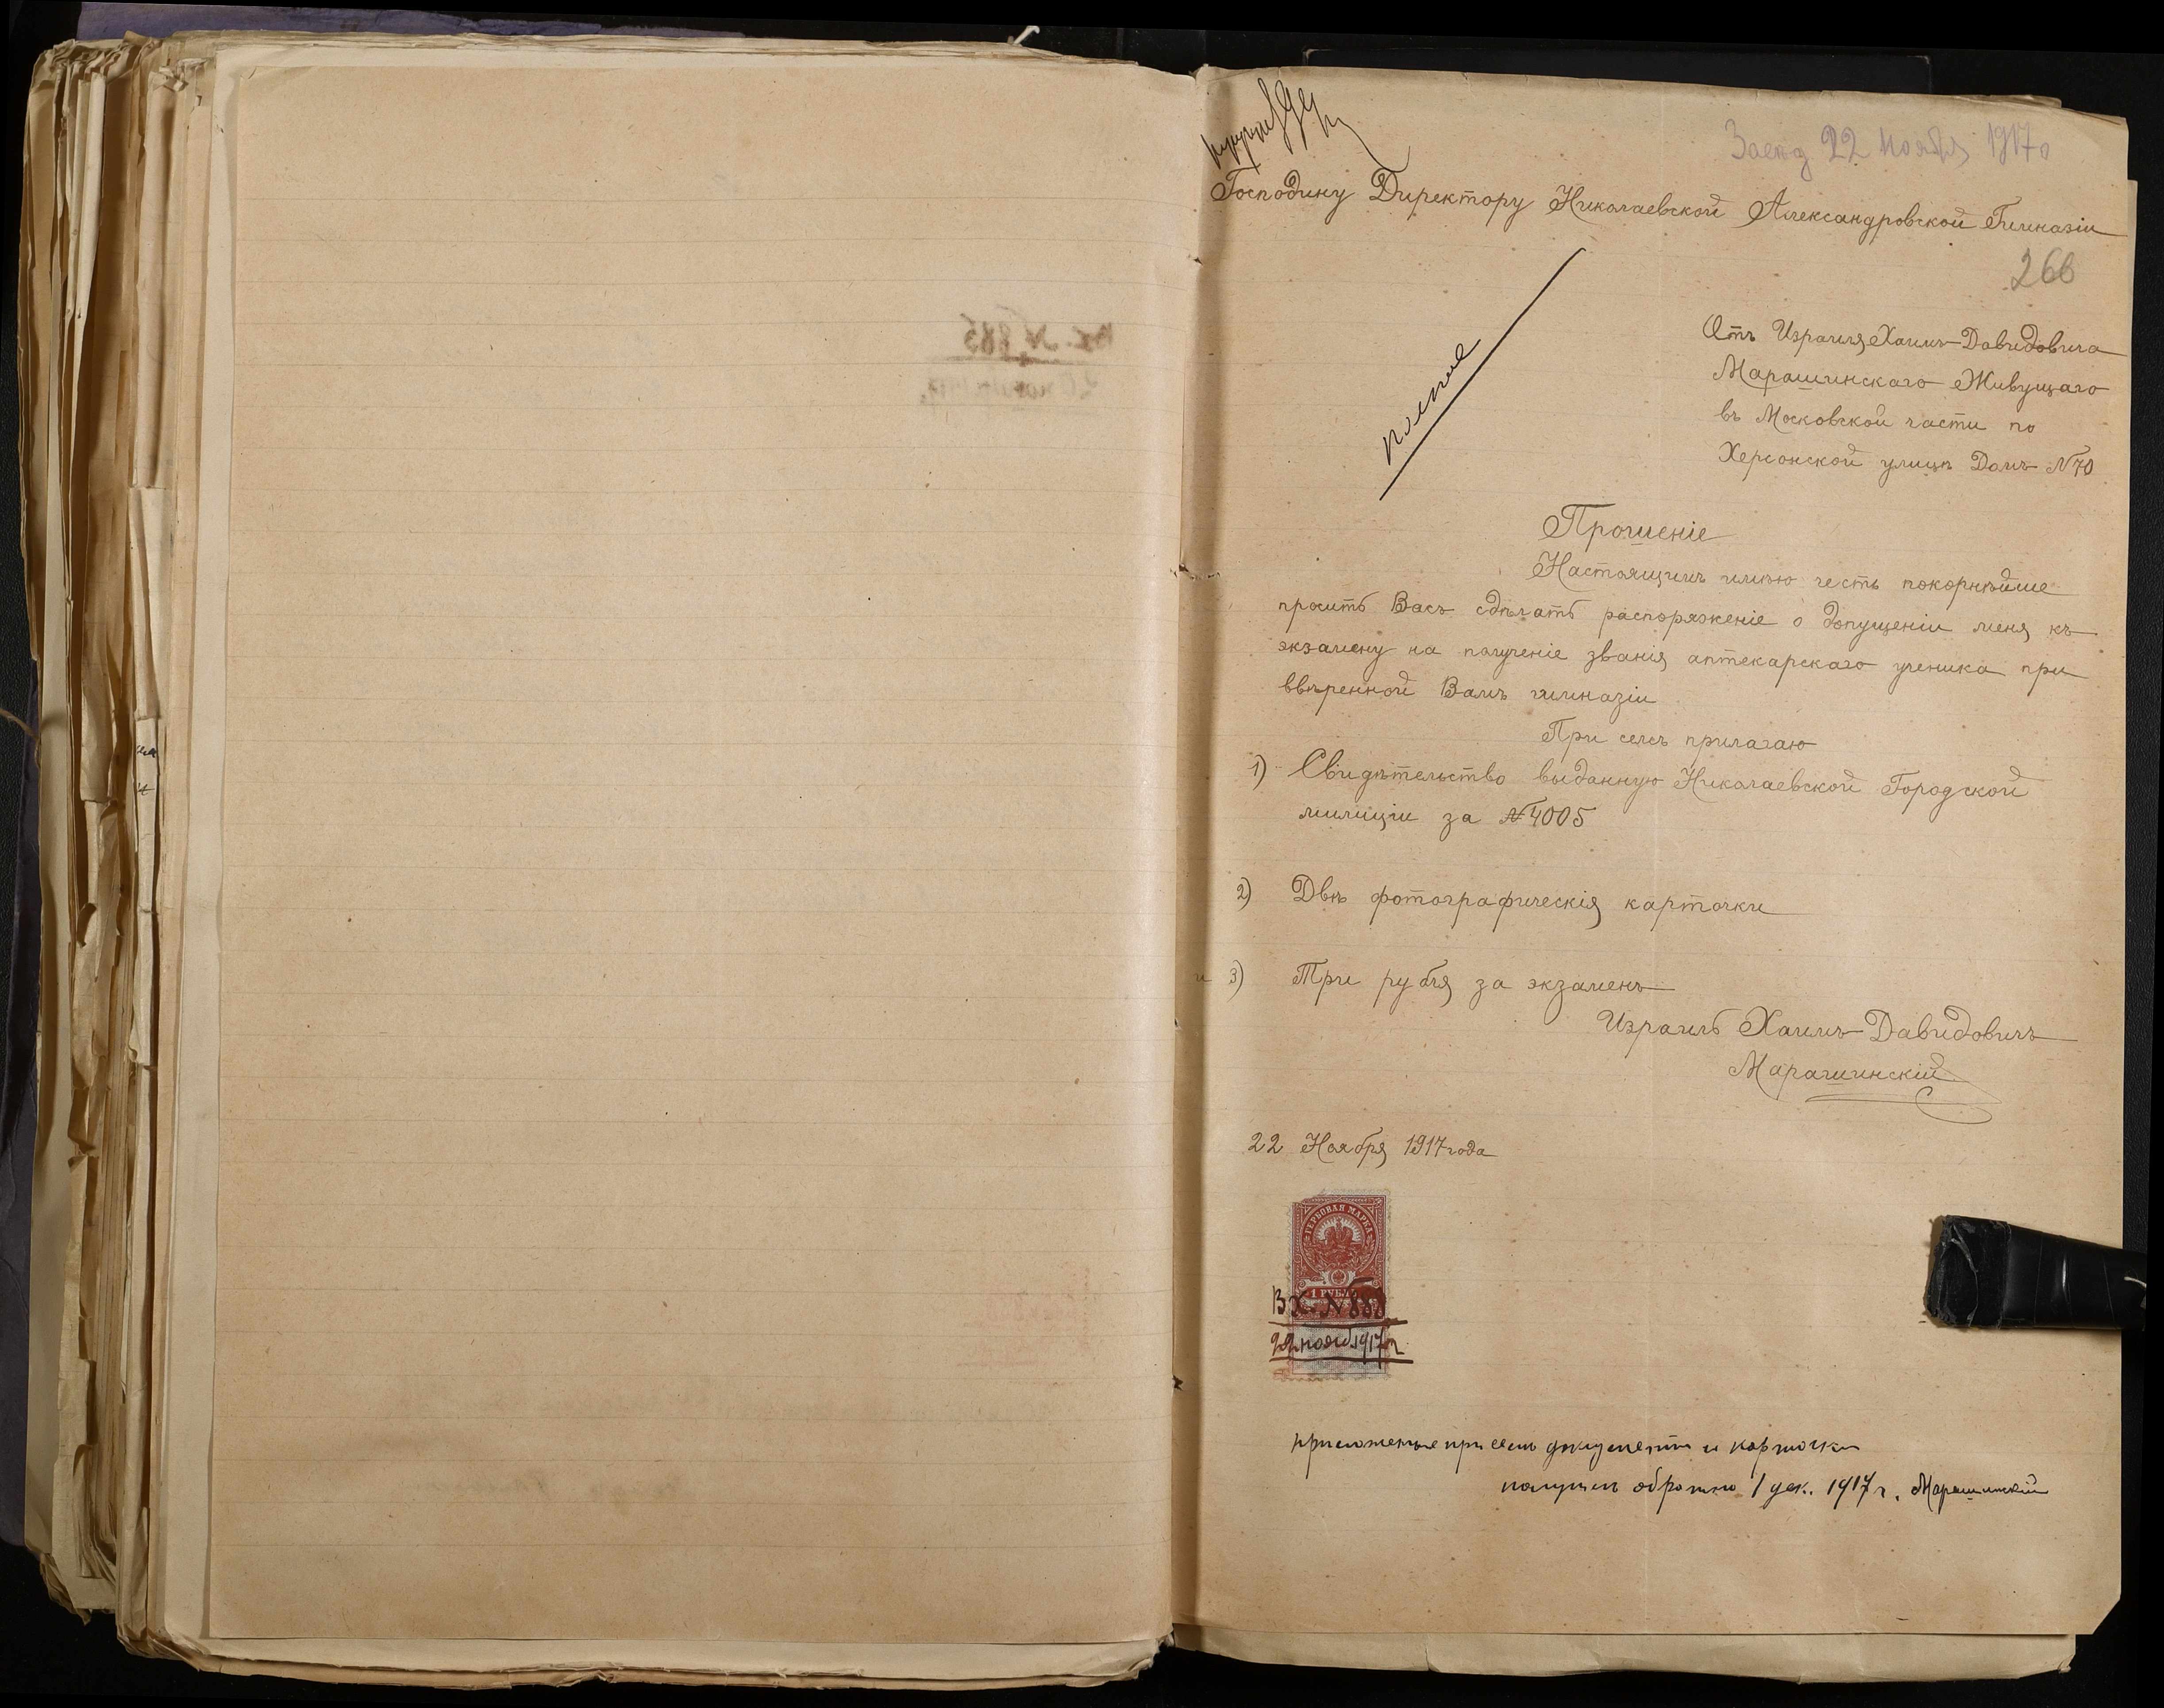 22 Ноября 1917 г
Господину Директору Николаевской Александровской Гимназіи
266
Отъ Израиля Хаимъ-Давидовича
Марашинскаго Живущаго
въ Московской части по
Херсонской улицѣ Домъ №70
Прошеніе
Настоящимъ имѣю честь покорнѣйше
просить Васъ сдѣлать распоряженіе о допущеніи меня къ
экзамену на полученіе званія аптекарскаго ученика при
ввѣренной Вамъ гимназіи
При семъ прилагаю
1) Свидѣтельство выданную Николаевской Городской
милиціи за №4005
2) Двѣ фотографическія карточки
и 3) Три рубля за экзаменъ
Израиль Хаимъ-Давидовичъ
Марашинскій
22 Ноября 1917 года
ГЕРБОВАЯ МАРКА
1 РУБЛЬ
Вх. № 888
22 нояб 1917 г
приложенные при семъ документы и карточки
получилъ обратно 1 дек. 1917 г. Марашинскій